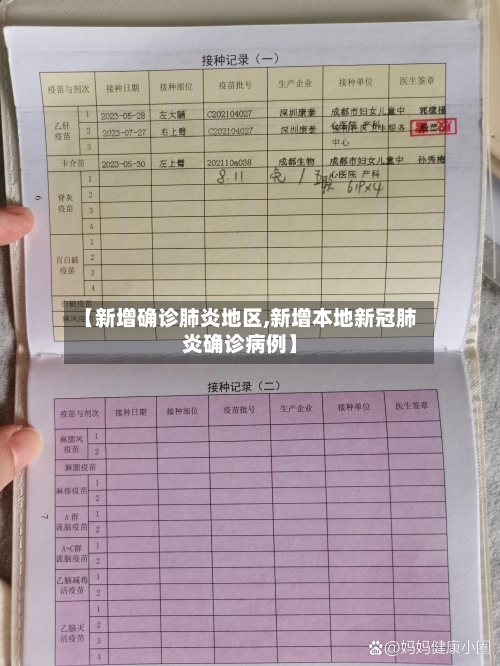 接种记录（一）
疫苗与剂次 接种日期 接种部位 疫苗批号 生产企业 接种单位 医生签章
乙肝疫苗 1 2023-05-28 左大腿 C202104027 深圳康泰 成都市妇女儿童中心医院 产科
2 2023-07-27 右上臂 C202104027 深圳康泰 中心
卡介苗 2023-05-30 左上臂 202110a038 成都生物 成都市妇女儿童中心医院 产科 孙秀梅
8.11
脊灰疫苗 1
2
3
4
百白破疫苗 1
2
3
4
白破疫苗
麻风
6
【新增确诊肺炎地区,新增本地新冠肺
炎确诊病例】
接种记录（二）
疫苗与剂次 接种日期 接种部位 疫苗批号 生产企业 接种单位 医生签章
麻腮风疫苗 1
2
麻腮疫苗
麻疹疫苗 1
2
A 群流脑疫苗 1
2
A+C群流脑疫苗 1
2
乙脑减毒活疫苗 1
2
乙脑灭活疫苗 1
2
3
4
7
@妈妈健康小圈